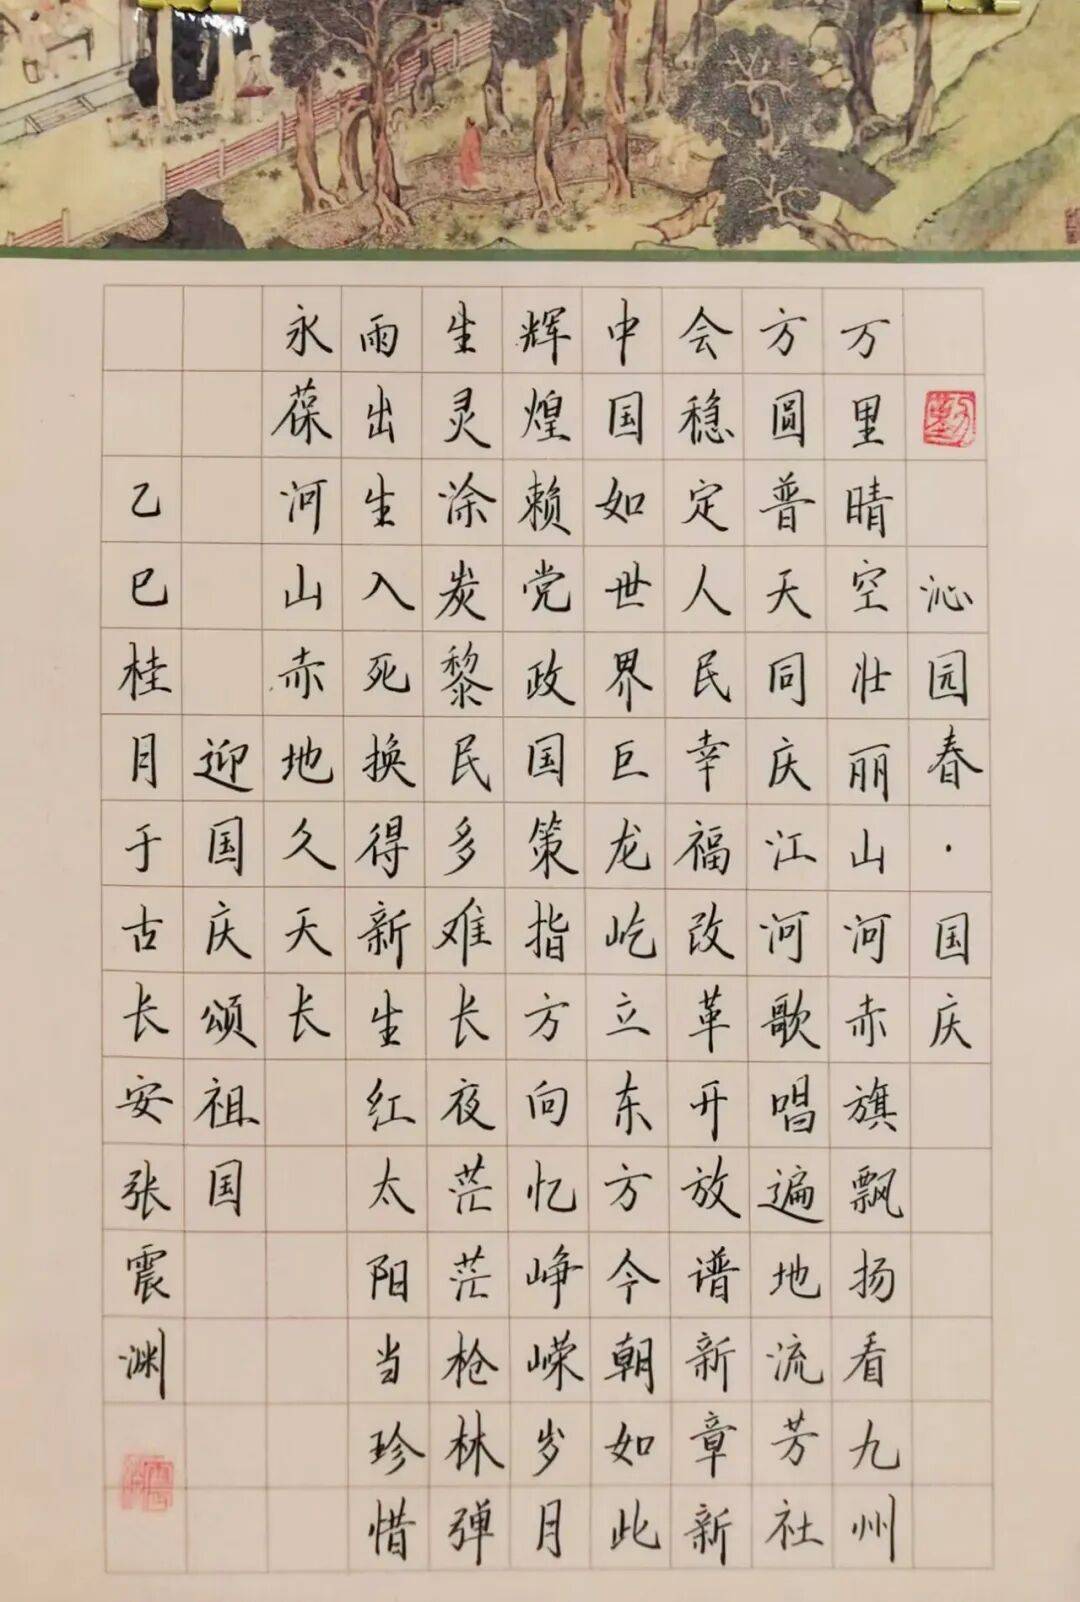 沁园春·国庆
万里晴空壮丽山河赤旗飘扬看九州
方圆普天同庆江河歌唱遍地流芳社
会稳定人民幸福改革开放谱新章新
中国如世界巨龙屹立东方今朝如此
辉煌赖党政国策指方向忆峥嵘岁月
生灵涂炭黎民多难长夜茫茫枪林弹
雨出生入死换得新生红太阳当珍惜
永葆河山赤地久天长
迎国庆颂祖国
乙巳桂月于古长安张震渊